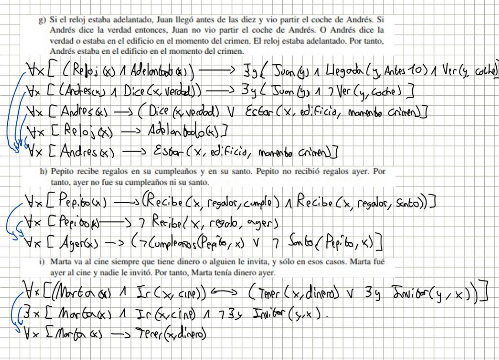 g) Si el reloj estaba adelantado, Juan llegó antes de las diez y vio partir el coche de Andrés. Si
Andrés dice la verdad entonces, Juan no vio partir el coche de Andrés. O Andrés dice la
verdad o estaba en el edificio en el momento del crimen. El reloj estaba adelantado. Por tanto,
Andrés estaba en el edificio en el momento del crimen.
∀x [ (Reloj(x) ∧ Adelantado(x)) ⟶ ∃y ( Juan(y) ∧ Llegada(y, Antes 10) ∧ Ver(y, coche)
∀x [ (Andres(x) ∧ Dice(x, verdad)) ⟶ ∃y ( Juan(y) ∧ ¬ Ver(y, coche) ]
∀x [ Andres(x) ⟶ (Dice(x, verdad) ∨ Estar(x, edificio, momento crimen)]
∀x [ Reloj(x) ⟶ Adelantado(x)]
∀x [ Andres(x) ⟶ Estar(x, edificio, momento crimen)]
h) Pepito recibe regalos en su cumpleaños y en su santo. Pepito no recibió regalos ayer. Por
tanto, ayer no fue su cumpleaños ni su santo.
∀x [ Pepito(x) ⟶ (Recibe(x, regalos, cumple) ∧ Recibe(x, regalos, santo))]
∀x [Pepito(x) ⟶ ¬ Recibe(x, regalo, ayer)
∀x [ Ayer(x) ⟶ (¬Cumpleaños(Pepito, x) ∨ ¬ Santo(Pepito, x)]
i) Marta va al cine siempre que tiene dinero o alguien le invita, y sólo en esos casos. Marta fue
ayer al cine y nadie le invitó. Por tanto, Marta tenía dinero ayer.
∀x [(Marta(x) ∧ Ir(x, cine)) ⟷ (Tener(x, dinero) ∨ ∃y Invitar(y, x))]
∃x [ Marta(x) ∧ Ir(x, cine) ∧ ¬∃y Invitar(y, x).
∀x [Marta(x) ⟶ Tener(x, dinero)